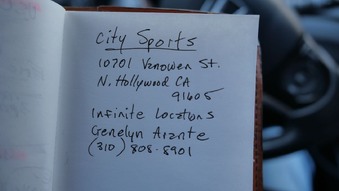 City Sports
10701 Vanowen St.
N. Hollywood CA
91605
Infinite Locations
Genelyn Arante
(310) 808-8901